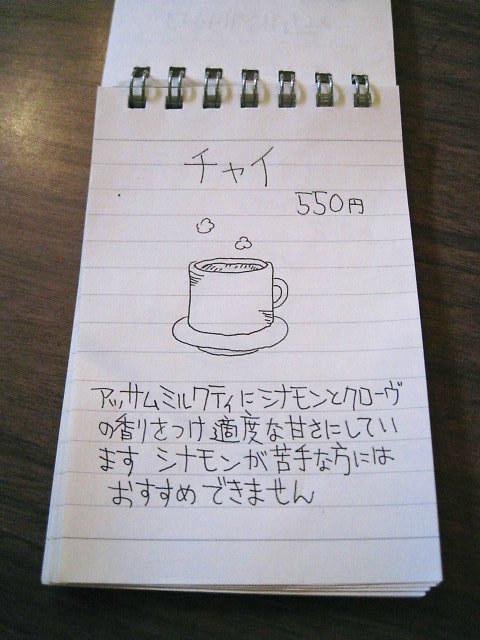 チャイ
550円
アッサムミルクティにシナモンとクローヴ
の香りをつけ適度な甘さにしてい
ます シナモンが苦手な方には
おすすめできません